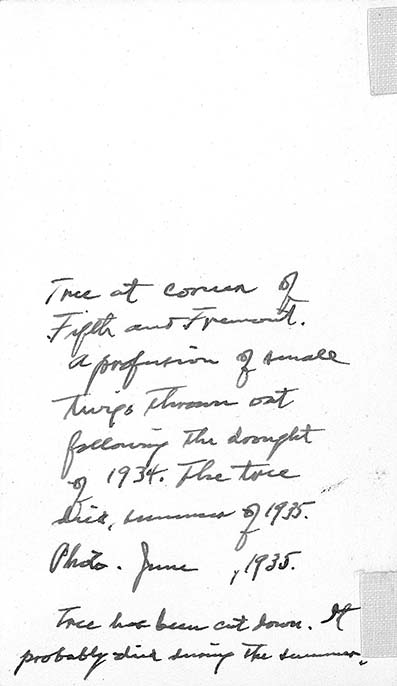 Tree at corner of
Fifth and Fremont.
A profusion of small
twigs thrown out
following the drought
of 1934. The tree
died, summer of 1935.
Photo. June , 1935.
Tree has been cut down. It
probably died during the summer.